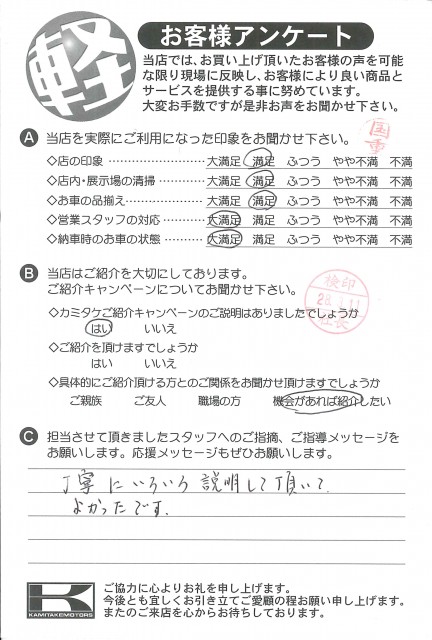 軽
お客様アンケート
当店では、お買い上げ頂いたお客様の声を可能
な限り現場に反映し、お客様により良い商品と
サービスを提供する事に努めています。
大変お手数ですが是非お声をお聞かせ下さい。
A 当店を実際にご利用になった印象をお聞かせ下さい。
◇店の印象 ………………… 大満足 満足 ふつう やや不満 不満
◇店内・展示場の清掃 ………… 大満足 満足 ふつう やや不満 不満
◇お車の品揃え ……………… 大満足 満足 ふつう やや不満 不満
◇営業スタッフの対応 ………… 大満足 満足 ふつう やや不満 不満
◇納車時のお車の状態 ………… 大満足 満足 ふつう やや不満 不満
B 当店はご紹介を大切にしております。
ご紹介キャンペーンについてお聞かせ下さい。
検印
社長
◇カミタケご紹介キャンペーンのご説明はありましたでしょうか
はい いいえ
◇ご紹介を頂けますでしょうか
はい いいえ
◇具体的にご紹介頂ける方とのご関係をお聞かせ頂けますでしょうか
ご親族 ご友人 職場の方 機会があれば紹介したい
C 担当させて頂きましたスタッフへのご指摘、ご指導メッセージを
お願いします。応援メッセージもぜひお願いします。
丁寧にいろいろ説明して頂いて
よかったです.
K
KAMITAKEMOTORS
ご協力に心よりお礼を申し上げます。
今後とも宜しくお引き立てご愛顧の程お願い申し上げます。
またのご来店を心からお待ちしております。